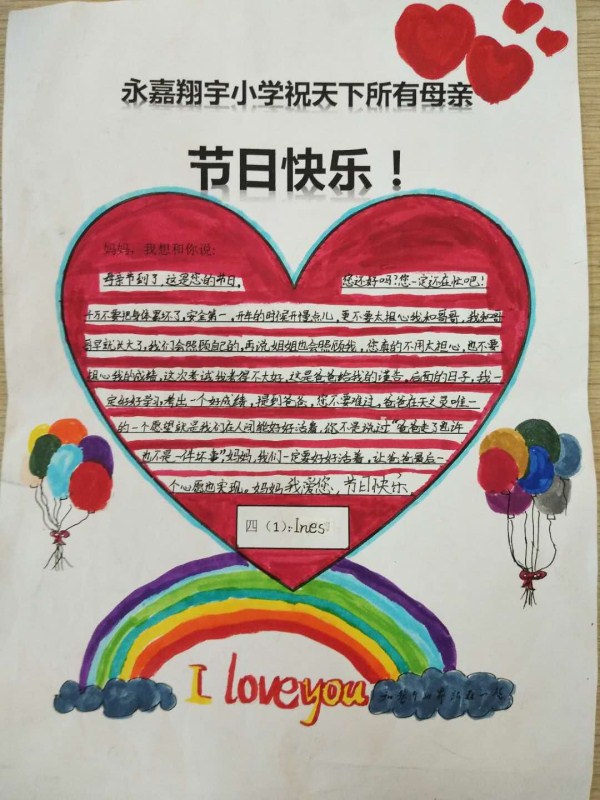 永嘉翔宇小学祝天下所有母亲
节日快乐！
妈妈，我想和你说:
母亲节到了，这是您的节日， 您还好吗？您一定还在忙吧！
千万不要把身体累坏了，安全第一，开车的时候开慢点儿，更不要太担心我和哥哥，我和哥
哥早就长大了，我们会照顾自己的，再说，姐姐也会照顾我，您真的不用太担心，也不要
担心我的成绩，这次考试我考得不太好，这是爸爸给我的谨告，后面的日子，我一
定好好学习，考出一个好成绩，提到爸爸，您不要难过，爸爸在天之灵唯一
的一个愿望就是我们在人间能好好活着，你不是说过“爸爸走了也许
也不是一件坏事”妈妈，我们一定要好好活着，让爸爸最后一
个心愿也实现。妈妈我爱您，节日快乐。
四（1）: Ines
I love you